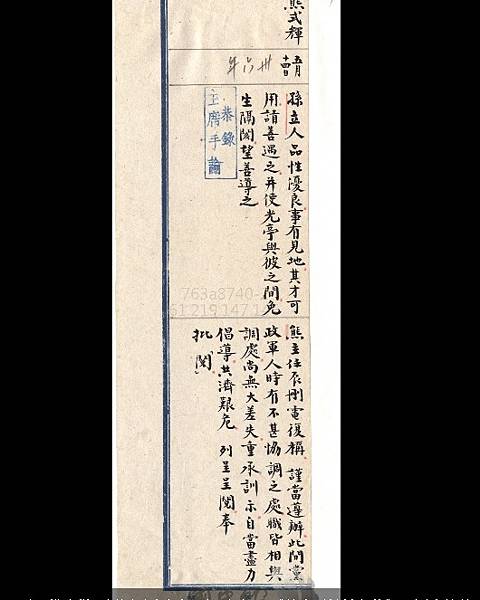 熊式輝
五月
十四日
卅六年
孫立人品性優良事有見地其才可
用請善遇之并使光亭與彼之間免
生隔閡望善導之
恭錄
主席手諭
熊主任辰刪電復稱 謹當遵辦此間黨
政軍人時有不甚恊調之處職皆相與
調處尚無大差失重承訓示自當盡力
倡導共濟艱危 列呈呈閱奉
批「閱」
763a8740-
61.219.147.1